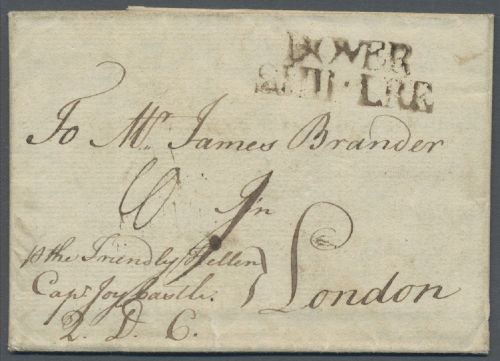 DOVER
SHIP·LRE
To Mr. James Brander
In
London
p the Friendly Hellen
Capt Joy Castle.
2. D. C.